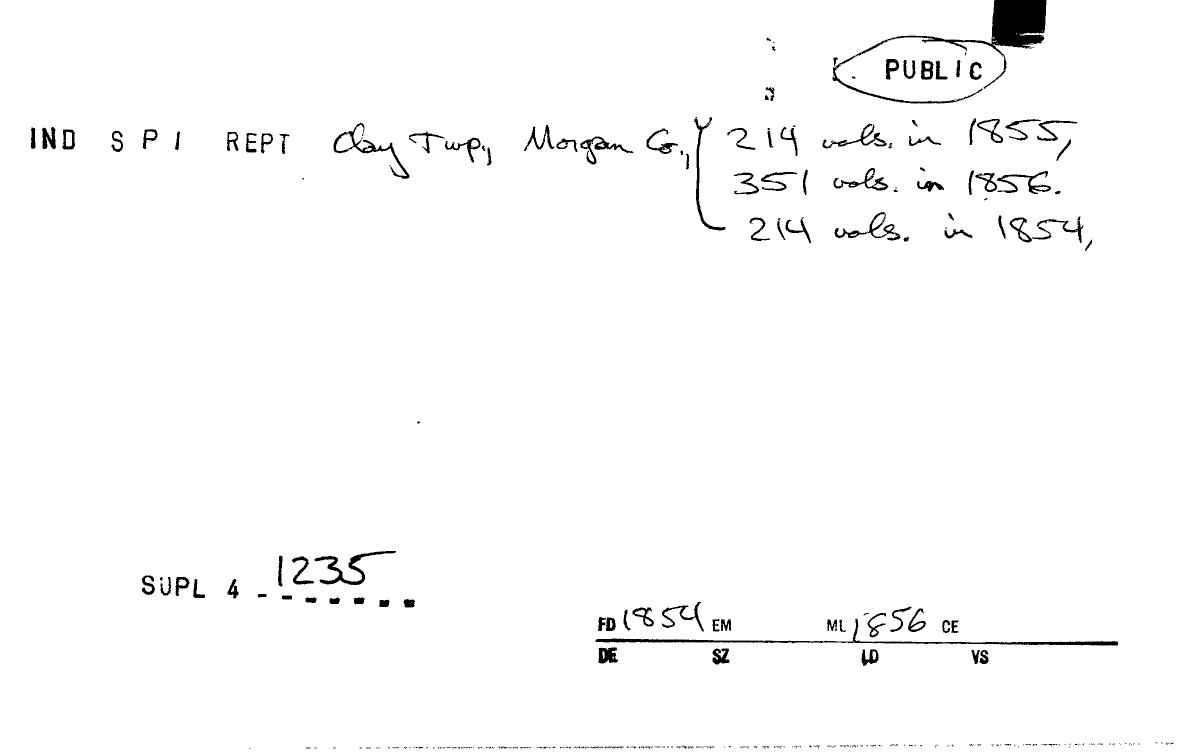 PUBLIC
IND S P I REPT Clay Twp., Morgan Co., 214 vols. in 1855,
351 vols. in 1856.
214 vols. in 1854,
SUPL 4 - 1235
FD 1854 EM ML 1856 CE
DE SZ LD VS